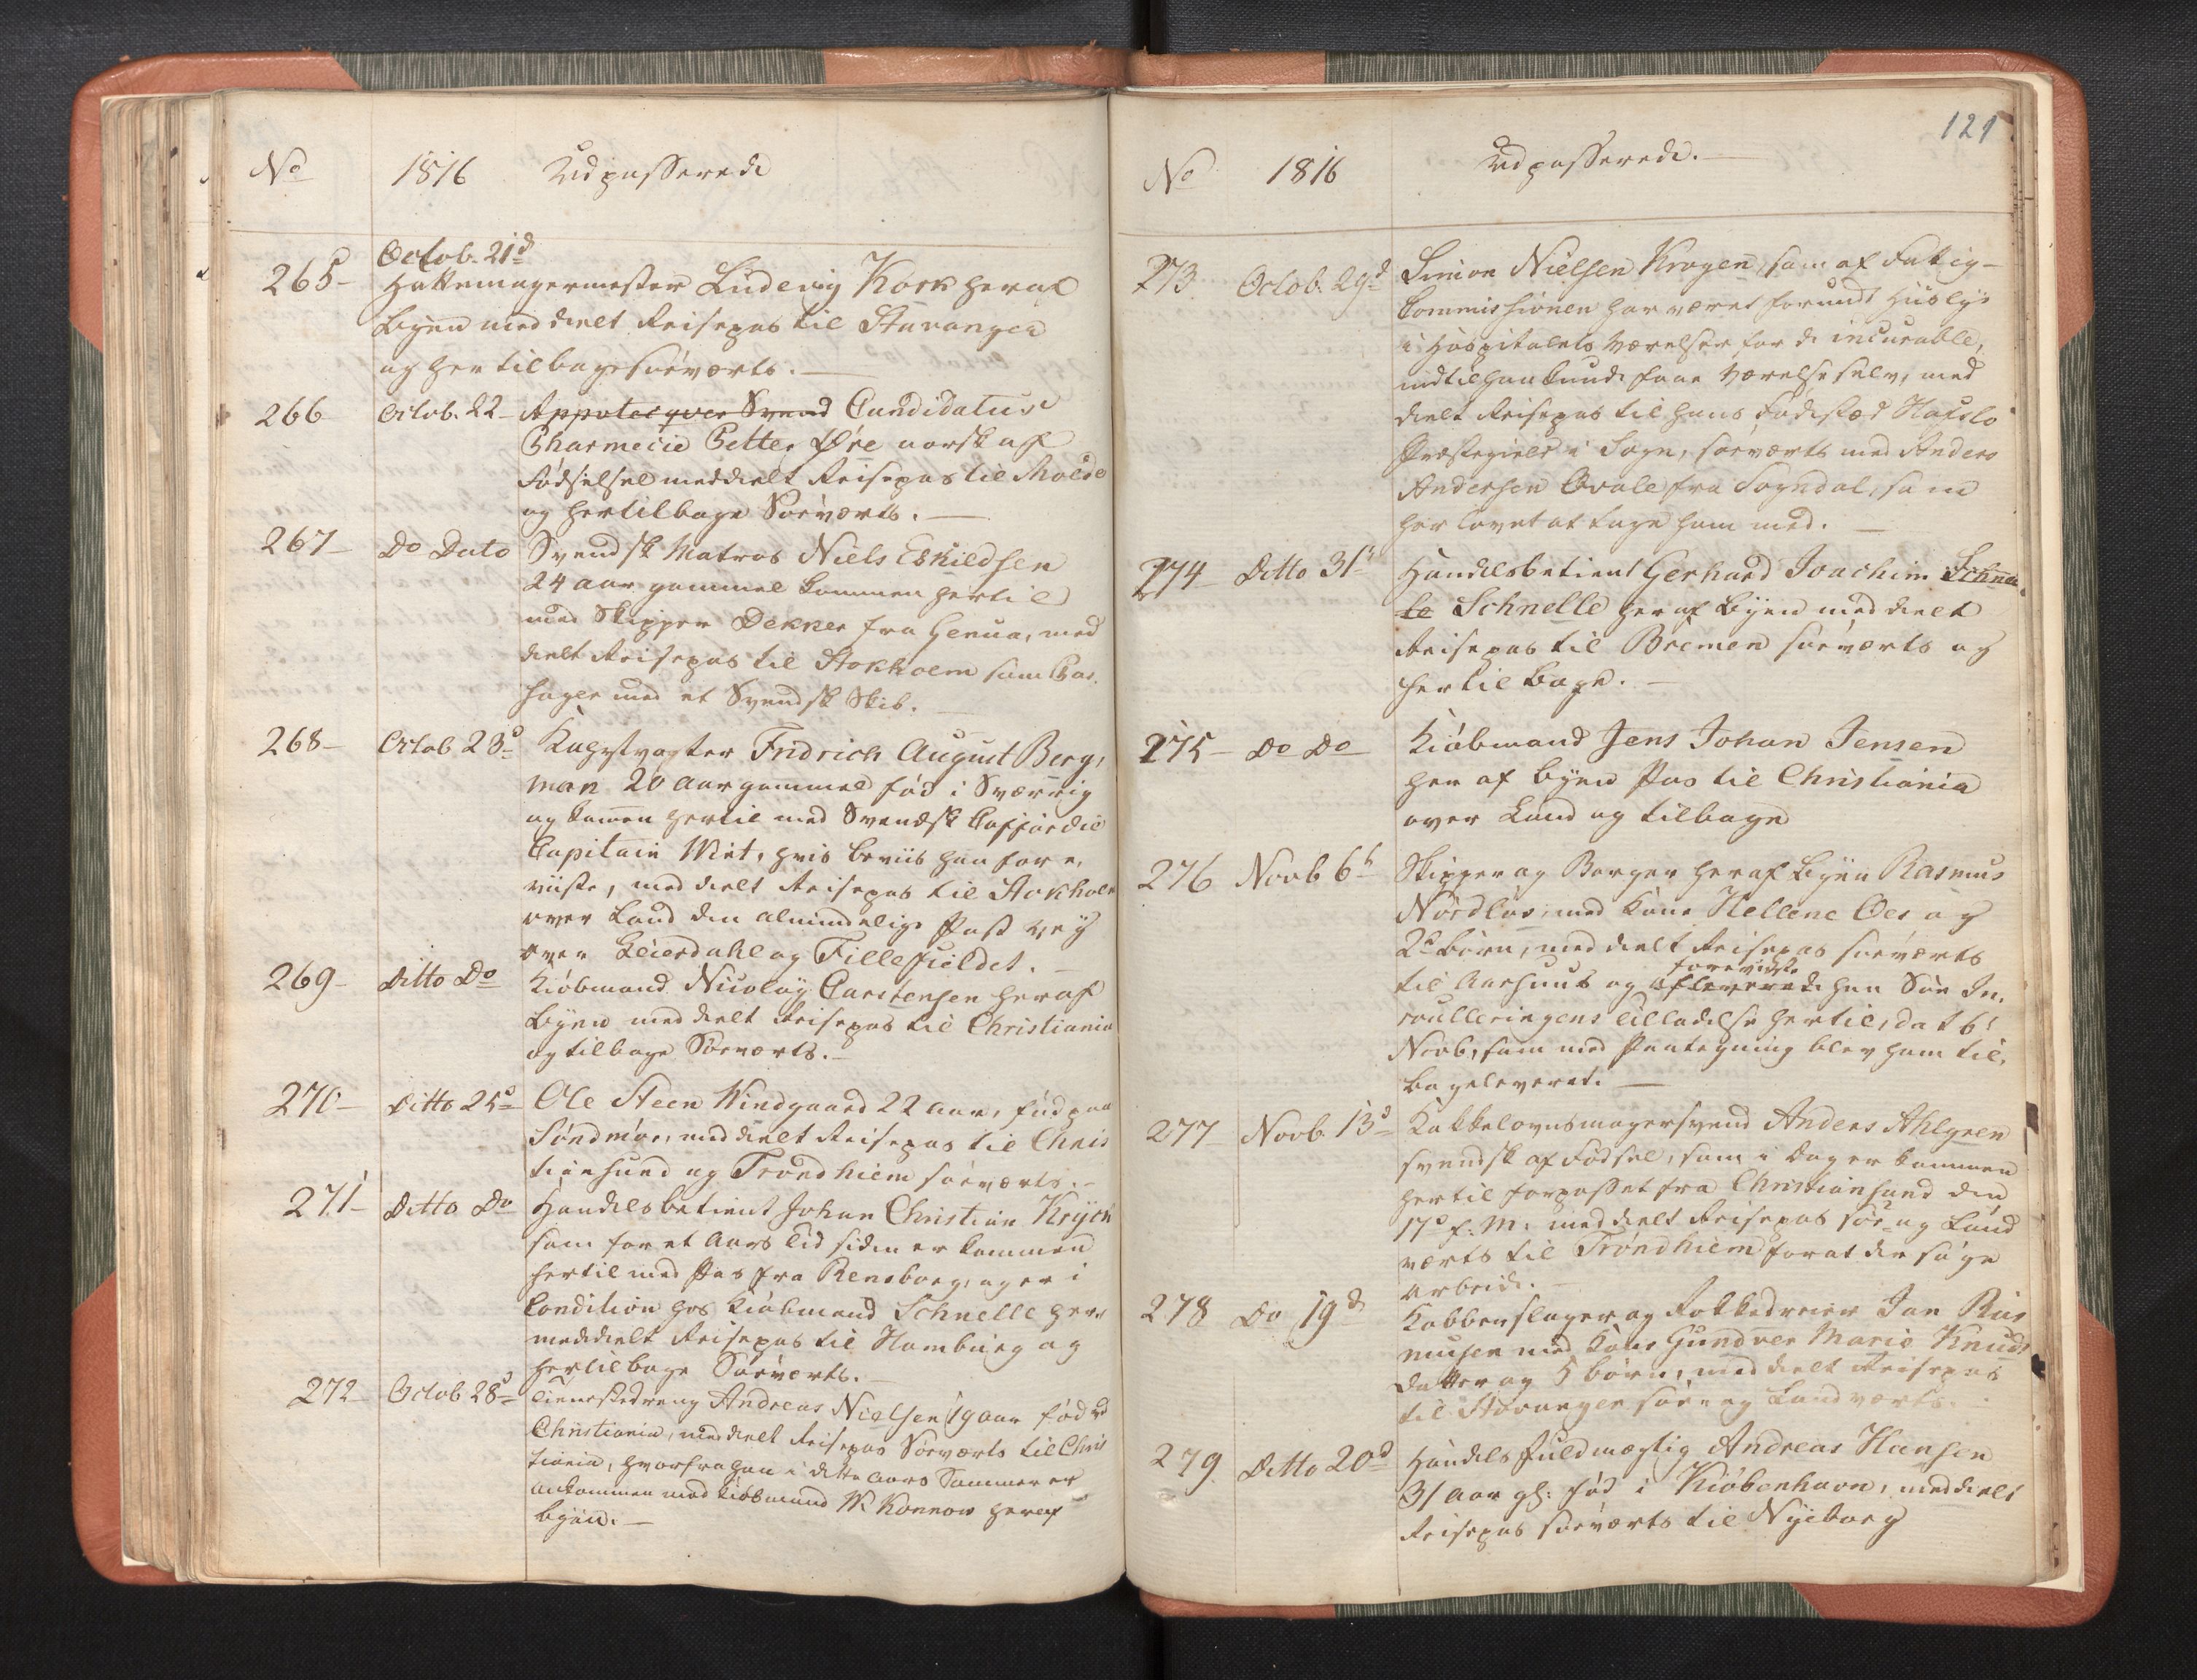 No 1816 Udpasserede
Octob. 21d
265- Hattemagermester Ludevig Kork heraf
Byen meddeelt Reisepas til Stavanger
og her tilbage søeværts.
266 Octob. 22- Appotecqver Svend Candidatus
Pharmecie Petter Øre norsk af
Fødselsel meddeelt Reisepas til Molde
og hertilbage Søeværts.
267- Do Dato Svendsk Matros Niels Eskildsen
24 aar gammel kommen hertil
med Skipper Dekker fra Genua, med
deelt Reisepas til Stokholm som Pas
sager med et Svendsk Skib.
268- Octob 23d Fridrich August Berg,
man 20 aar gammel fød i Sværrig
og kommen hertil med Svendsk Coffardie
Capitain Wiet, hvis beviis han fore,
viiste, meddeelt Reisepas til Stokholm
over Land den almindelige Post Vej
over Leierdahl og Fillefieldet.
269- Ditto Do Kiøbmand Nicolay Carstensen heraf
Byen meddeelt Reisepas til Christiania
og tilbage Søeværts.
270- Ditto 25d Ole Steen Windgaard 22 aar, fød paa
Søndmør, meddeelt Reisepas til Chris
tiansund og Trondhiem søeværts.
271- Ditto Do Handelsbetient Johan Christian Krÿck
som for et Aars Tid siden er kommen
hertil med Pas fra Rensborg, og er i
Condition hos Kiøbmand Schnelle her
meddeelt Reisepas til Hamburg og
hertilbage Søeværts.
272- Octob 28d Tienestedreng Andreas Nielsen 19 aar fød
Christiania, meddeelt Reisepas Søeværts til Chris
tiania, hvorfra han i dette Aars Sommer er
ankommen med Kiøbmand W. Konnow heraf
byen.
121
No 1816 Udpasserede.
273 Octob. 29d Simon Nielsen Krogen, som af Fattig-
Commissionen har været forundt Huslye
i Hospitalets Værelser for de incurable,
indtil han kunde faae Værelse selv, med
deelt Reisepas til hans Fødested Hafslo
Præstegield i Sogn, søeværts med Anders
Andersen Qvale fra Sogndal, som
har lovet at tage ham med.
274- Ditto 31te Handelsbetient Gerhard Joachim Schne
le Schnelle her af Byen meddeelt
Reisepas til Bremen søeværts og
hertilbage.
275- Do Do Kiøbmand Jens Johan Jensen
her af byen Pas til Christiania
over Land og tilbage
276 Novb 6te Skipper og Borger heraf Byen Rasmus
Nordlas, med Kone Hellene Oes og
2de børn, meddeelt Reisepas søeværts
foreviiste
til Aarhuus og afleverede han Søe In,
roulleringens Tilladelse hertil, dat 6te
Novb, som med Paategning blev ham til,
bageleveret.
277- Novb. 13d Kakkelovnsmagersvend Anders Ahlgren
svendsk af Fødsel, som i Dag er kommen
hertil forpasset fra Christiansand den
17d f: M: meddeelt Reisepas søe og Land
værts til Trondhiem for at der søge
arbeide.
278 Do 19d Kobberslager og Rokkedreier Jan Ras
musen med Kone Gundver Marie Knuds
datter og 5 børn, meddeelt Reisepas
til Stavanger søe og Landværts.
279 Ditto 20d Handels Fuldmægtig Andreas Hansen
31 Aar gl: fød i Kiøbenhavn, meddeelt
Reisepas søeværts til Nÿeborg